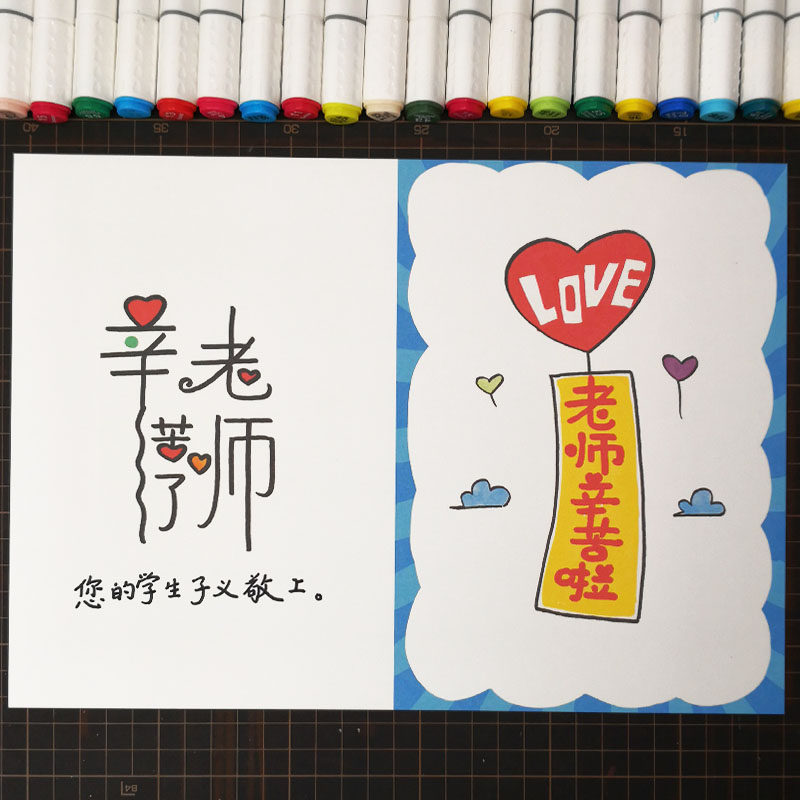 40 35 30 25 20 15
老师
辛苦了
您的学生子义敬上。
LOVE
老师辛苦啦
B4